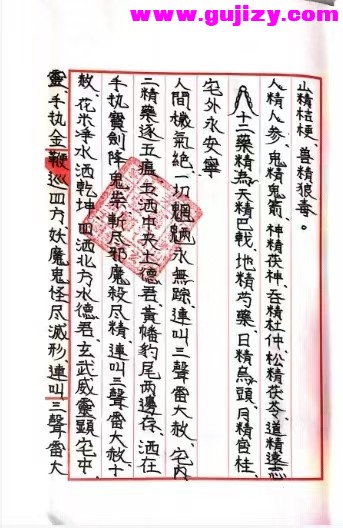 www.gujizy.com
山精桔梗、兽精狼毒。
人精人参、鬼精鬼箭、神精茯神、吞精杜仲、松精茯苓、道精遠志
十二藥精為天精巴戟、地精芍藥、日精烏頭、月精官桂、
宅外永安寧
人間穢氣絕、一切魍魎永無踪、連叫三聲雷大赦、宅內
二精藥逐五瘟、五洒中央土德君、黃幡豹尾兩邊存、洒在
手执寶劍降鬼祟、斬尽邪魔殺尽精、連叫三聲雷大赦、十
赦、花米淨水洒乾坤、四洒北方水德君、玄武威靈顕宅中、
靈、手执金鞭巡四方、妖魔鬼怪尽滅形、連叫三聲雷大